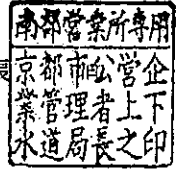 南部営業所専用
京都市公営企
業管理者上下
水道局長之印